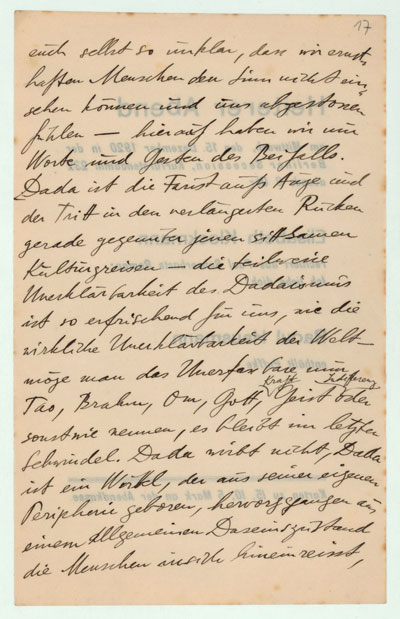 17
euch selbst so unklar, dass wir ernst-
haften Menschen den Sinn nicht ein-
sehen können und uns abgestossen
fühlen — hierauf haben wir nur
Worte und Gesten des Beifalls.
Dada ist die Faust aufs Auge und
der Tritt in den verlängerten Rücken
gerade gegenüber jenen sittsamen
Kulturgreisen — die teilweise
Unerklärbarkeit des Dadaismus
ist so erfrischend für uns, wie die
wirkliche Unerklärbarkeit der Welt —
möge man das Unerfassbare nun
Kraft Indifferenz
Tao, Brahm, Om, Gott, Geist oder
sonstwie nennen, es bleibt im letzten
Schwindel. Dada wirbt nicht, Dada
ist ein Wirbel, der aus seiner eigenen
Peripherie geboren, hervorgegangen aus
einem allgemeinen Daseinszustand
die Menschen in sich hineinreisst,